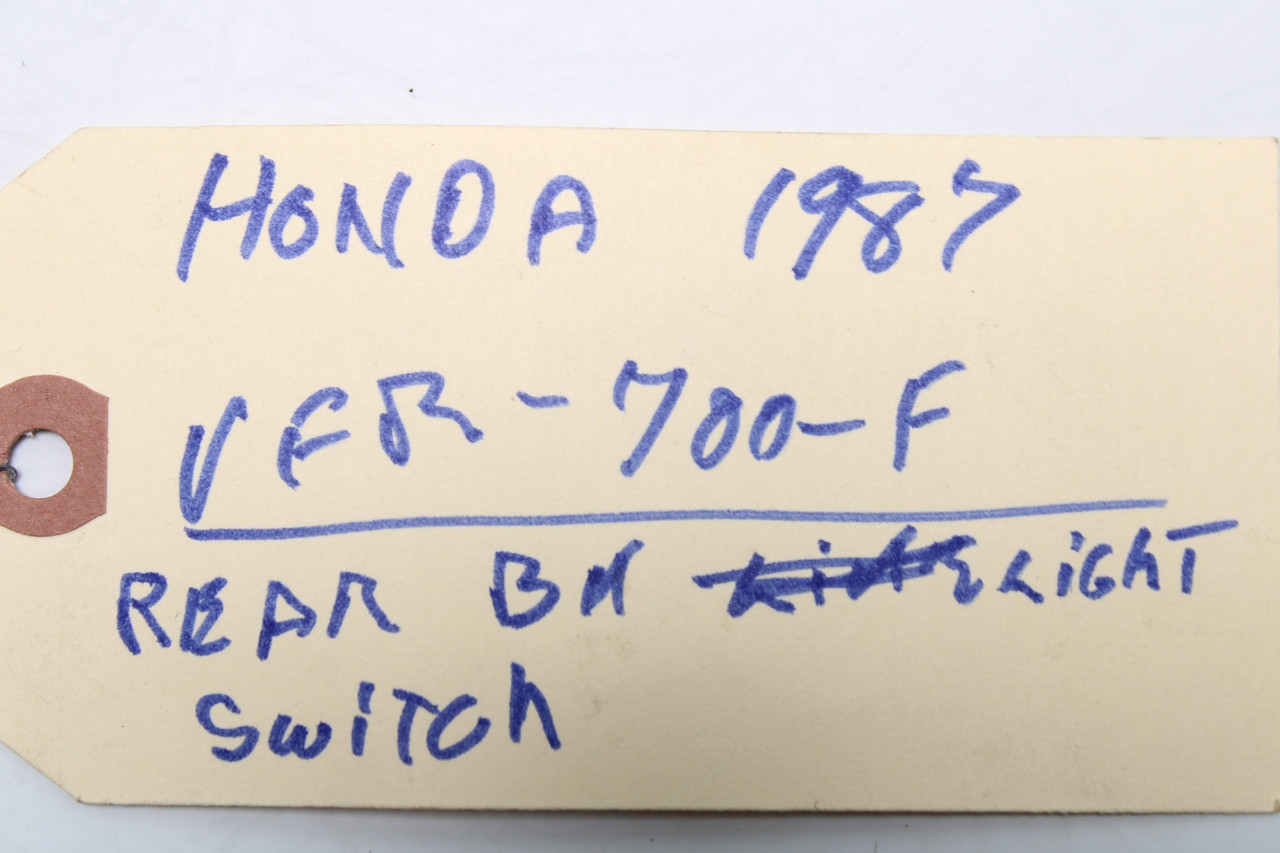 HONDA 1987
VFR-700-F
REAR BK LIGHT
SWITCH